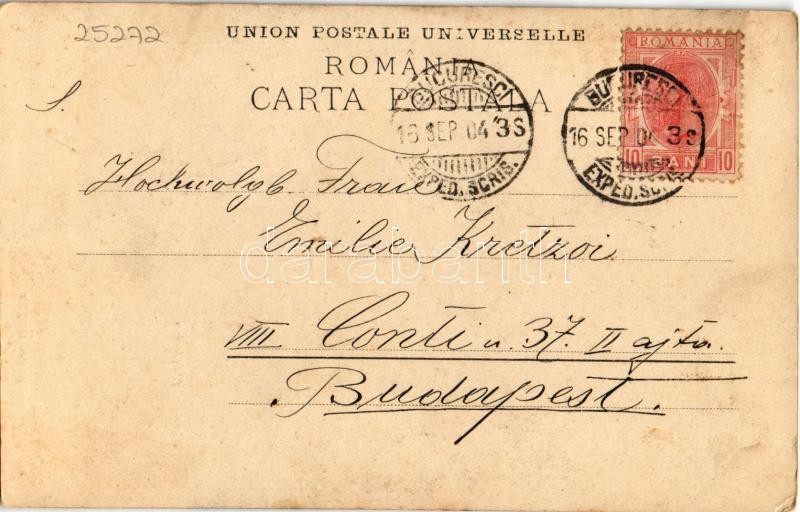 25272
UNION POSTALE UNIVERSELLE
ROMÂNIA
CARTA POSTALA
S.
BUCURESCI
16 SEP 04 3S
EXPED. SCRIS.
ROMANIA
10 BANI 10
BUCURESCI
16 SEP 04 3S
EXPED. SCRIS.
Hochwolgb. Frau
Emilie Kretzoi
VIII Conti u. 37. II ajtó.
Budapest.
darabanth